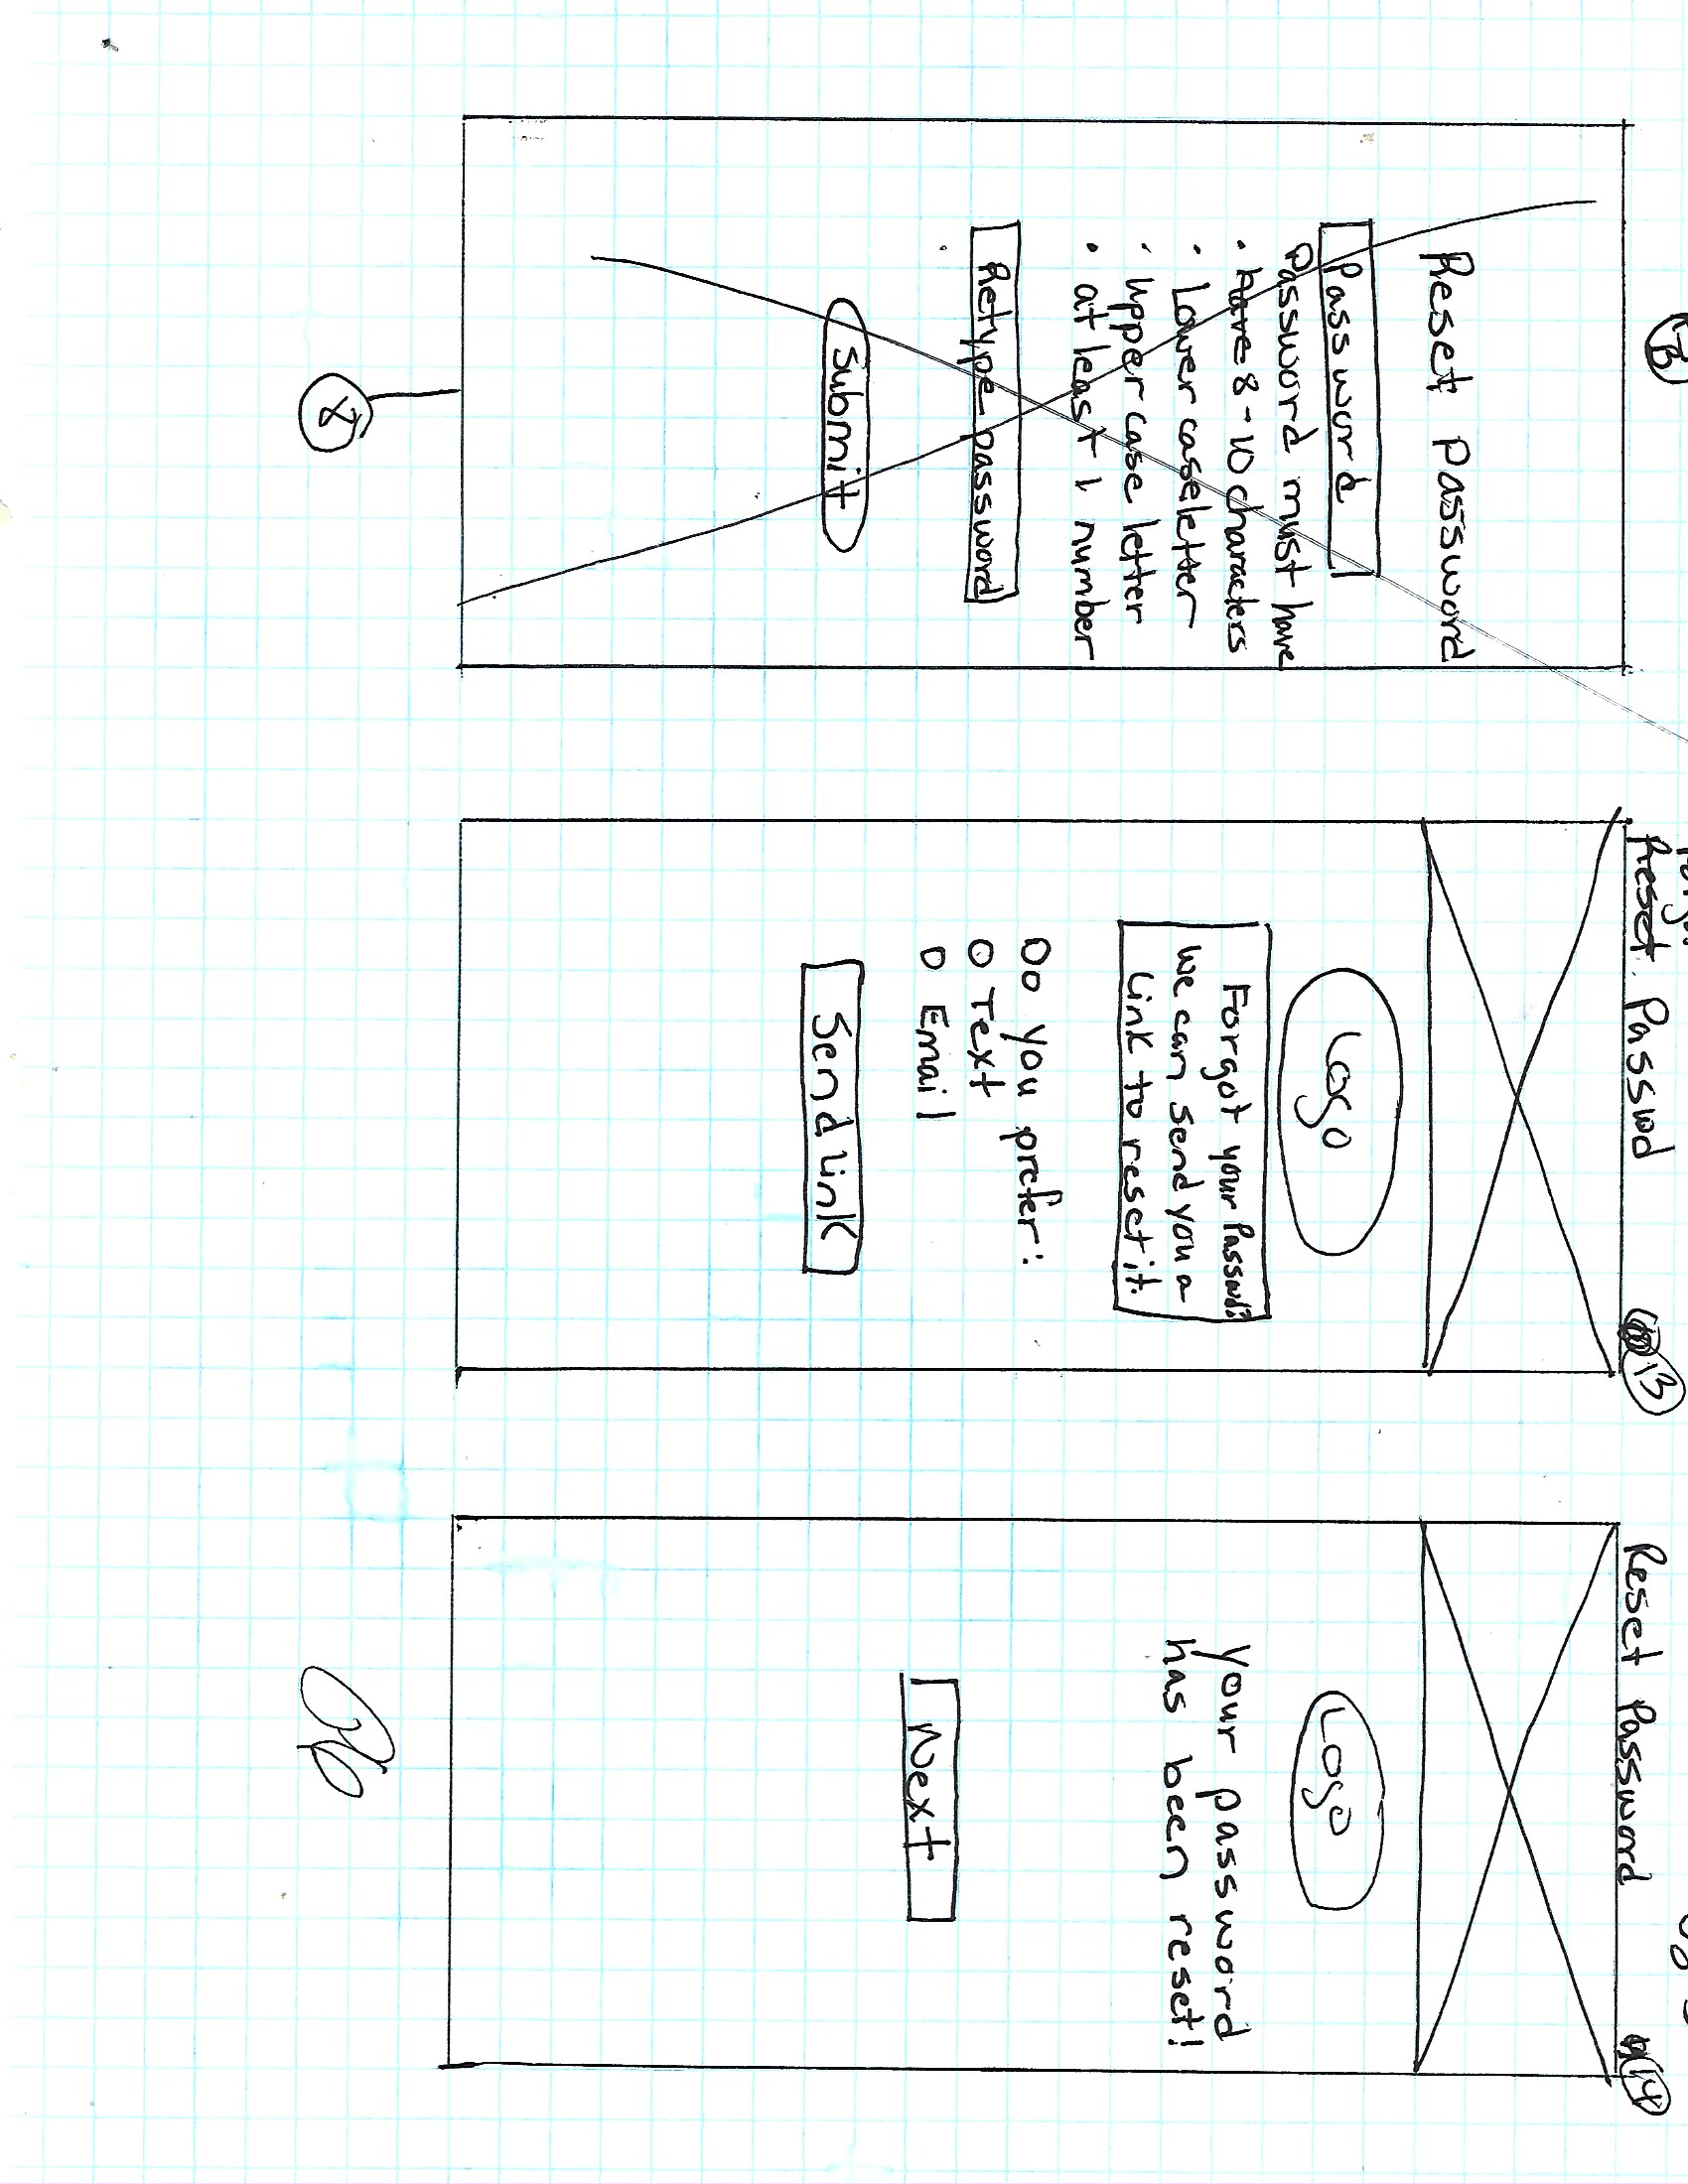 B
Reset Password
Password
Password must have
• have 8-10 characters
• Lower case letter
• upper case letter
• at least 1 number
Retype password
Submit
8
Reset Passwd
13
Logo
Forgot your Passwd?
we can send you a
Link to reset it.
Do you prefer:
O Text
O Email
Send Link
Reset Password
14
Logo
your password
has been reset!
Next